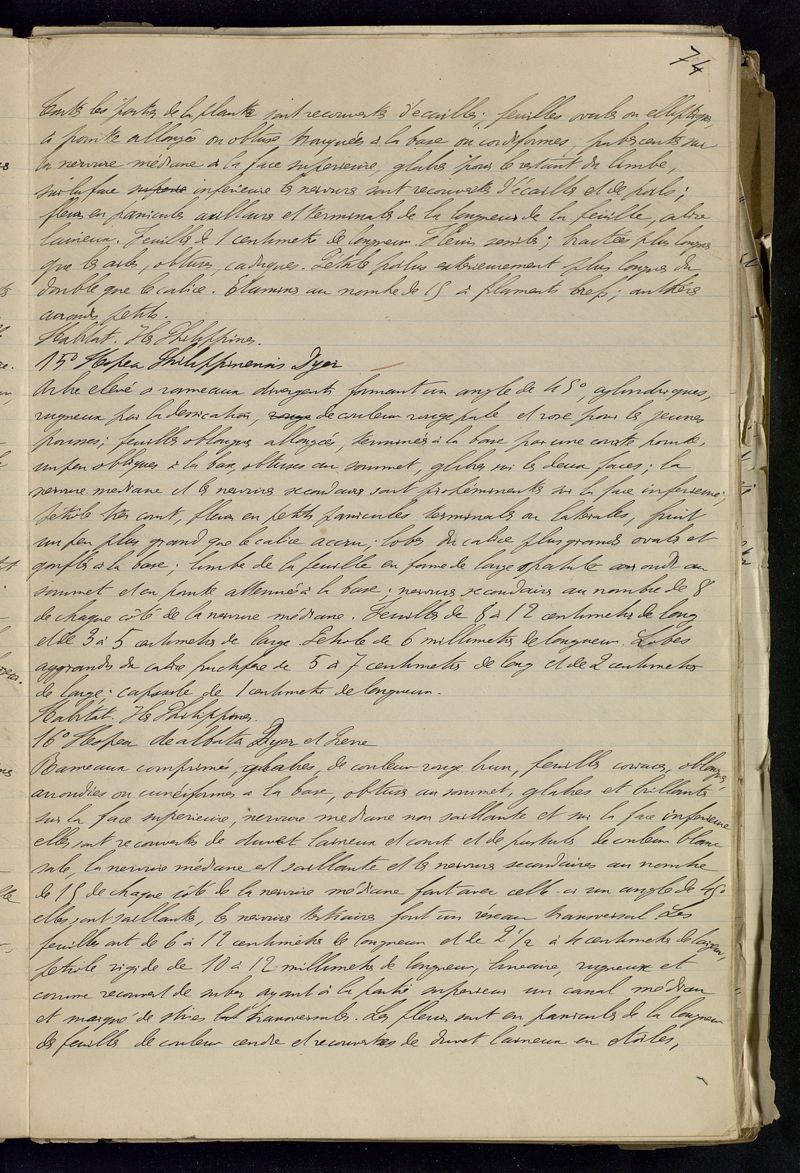 74
toutes les parties de la plante sont recouvertes d'écailles; feuilles ovales ou elliptiques,
à pointe allongée ou obtuse tronquées à la base ou cordiformes, pubescentes sur
la nervure médiane à la face superieure, glabres pour le restant du limbe,
sur la face superie inférieure les nervures sont recouvertes d'écailles et de poils;
fleurs en panicules axillaires et terminales de la longueur de la feuille, calice
laineux. Feuilles de 1 centimetre de longueur. Fleurs sessiles; bractées plus longues
que les axes, obtuses, caduques. Petale poilus exterieurement plus longues du
double que le calice. Etamines au nombre de 15 à filaments brefs; anthères
arrondis petits.
Habitat. Iles Philippines.
15º Hopea Philippinensis Dyer
Arbre elevé à rameaux divergents formant un angle de 45º, cylindriques,
rugueux par la dessication, rouge de couleur rouge pale et rose pour les jeunes
pousses; feuilles oblongues allongées, terminées à la base par une courte pointe,
un peu obliques à la base, obtuses au sommet, glabres sur les deux faces; la
nervure mediane et les nervures secondaires sont prohéminentes sur la face inferieure;
petiole très court, fleurs en petits panicules terminales ou laterales, fruit
un peu plus grand que le calice accru; lobes du calice plus grands ovales et
gonflés à la base; limbe de la feuille en forme de large spatule arrondi au
sommet et en pointe attenuée à la base; nervures secondaires au nombre de 8
de chaque côté de la nervure médiane. Feuilles de 8 à 12 centimetres de long
et de 3 à 5 centimetres de large. Petiole de 6 millimetres de longueur. Lobes
aggrandis du calice fructifere de 5 à 7 centimetres de long et de 2 centimetres
de large; capsule de 1 centimetre de longueur.
Habitat. Iles Philippines.
16º Hopea dealbata Dyer et
Rameaux comprimés, glabres, de couleur rouge brun, feuilles coriaces, oblongues,
arrondies ou cunéiformes a la base, obtuses au sommet, glabres et brillantes
sur la face superieure, nervure mediane non saillante et sur la face inferieure
elles sont recouvertes de duvet laineux et court et de pustules de couleur blanc
sale, la nervure médiane est saillante et les nervures secondaires au nombre
de 15 de chaque côté de la nervure mediane font avec celle-ci un angle de 45º
elles sont saillantes, les nervures tertiaires font un réseau transversal. Les
feuilles ont de 6 à 12 centimètres de longueur et de 2 1/2 à 4 centimetres de largeur,
petiole rigide de 10 à 12 millimetres de longueur, lineaire, rugueux et
comme recouvert de suber ayant à la partie superieure un canal médian
et marqué de stries transversales. Les fleurs sont en panicules de la longueur
des feuilles de couleur cendre et recouvertes de duvet laineux en etoiles,